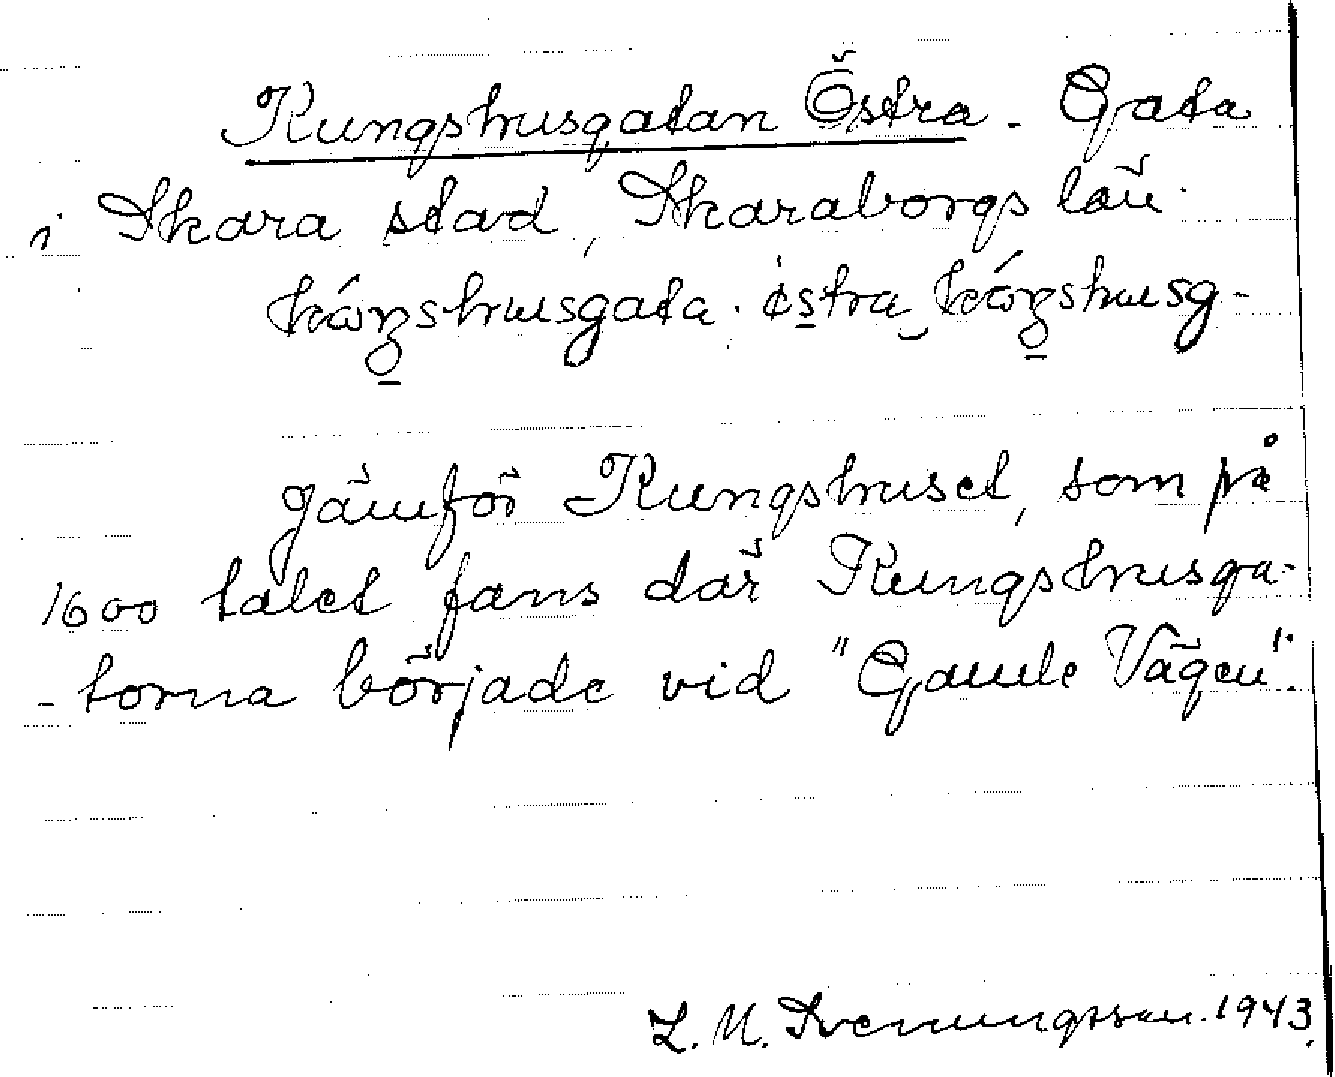 Kungshusgatan Östra - Gata
i Skara stad, Skaraborgs län.
kóngshusgata. östra kóngshusg-
jämför Kungshuset, som på
1600 talet fans där Kungshusga-
-torna började vid "Gamle Vägen".
L. M. Svenungsson. 1943.